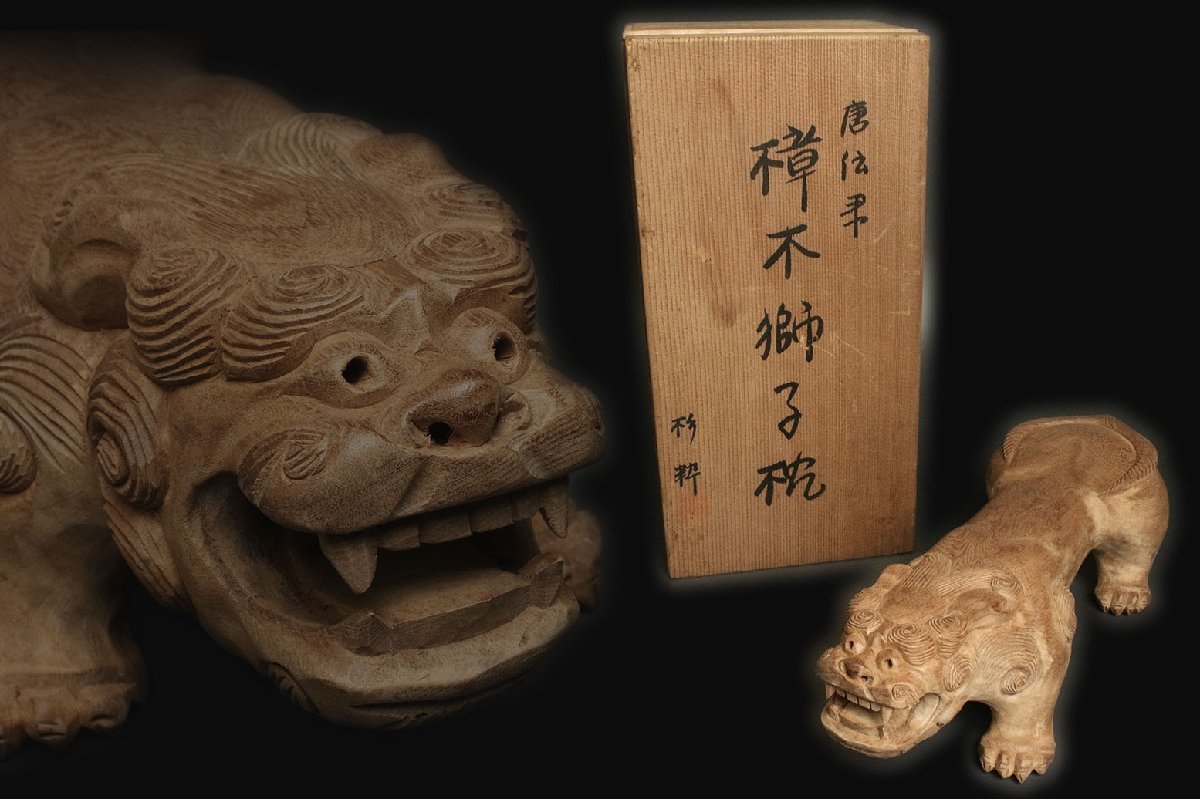 唐伝
樟木獅子枕
杉粋